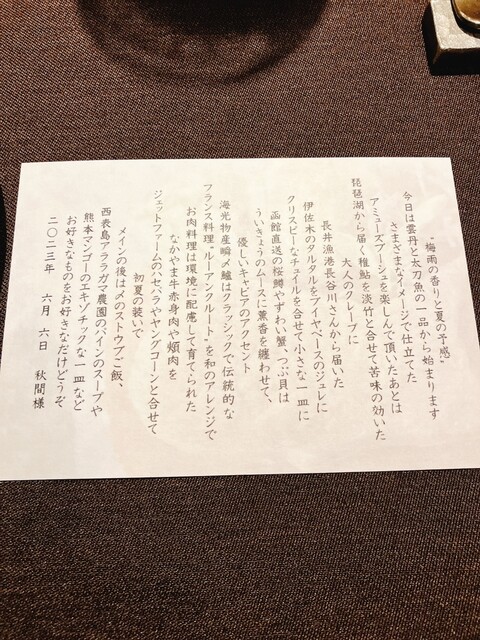 〝梅雨の香りと夏の予感〟
今日は雲丹と太刀魚の一品から始まります
さまざまなイメージで仕立てた
アミューズブーシュを楽しんで頂いたあとは
琵琶湖から届く稚鮎を淡竹と合せて苦味の効いた
大人のクレープに
長井漁港長谷川さんから届いた
伊佐木のタルタルをブイヤベースのジュレに
クリスピーなチュイルを合せて小さな一皿に
函館直送の桜鱒やずわい蟹、つぶ貝は
ういきょうのムースに薫香を纏わせて、
優しいキャビアのアクセント
海光物産瞬〆鱸はクラッシックで伝統的な
フランス料理〝ルーアンクルート〟を和のアレンジで
お肉料理は環境に配慮して育てられた
なかやま牛赤身肉や頬肉を
ジェットファームのパセベラやヤングコーンと合せて
初夏の装いで
メインの後は〆のストウブご飯、
西表島アララガマ農園のパインのスープや
熊本マンゴーのエキゾチックな一皿など
お好きなものをお好きなだけどうぞ
二〇二三年 六月 六日 秋間様